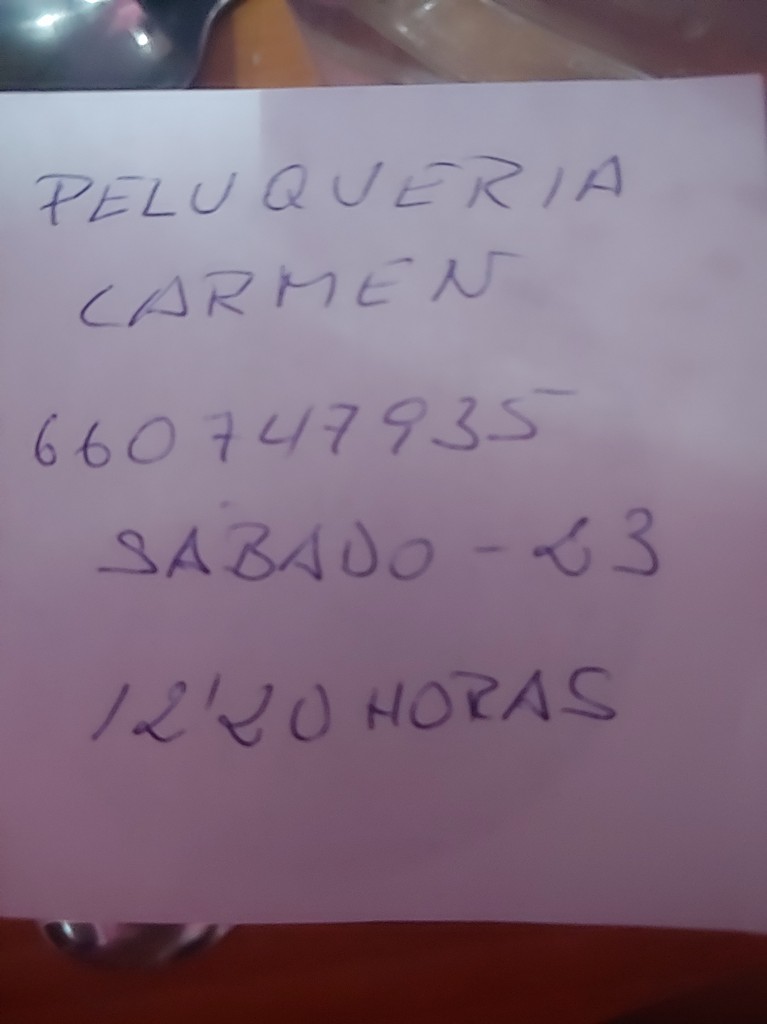 PELUQUERIA
CARMEN
660747935
SABADO - 23
12'20 HORAS